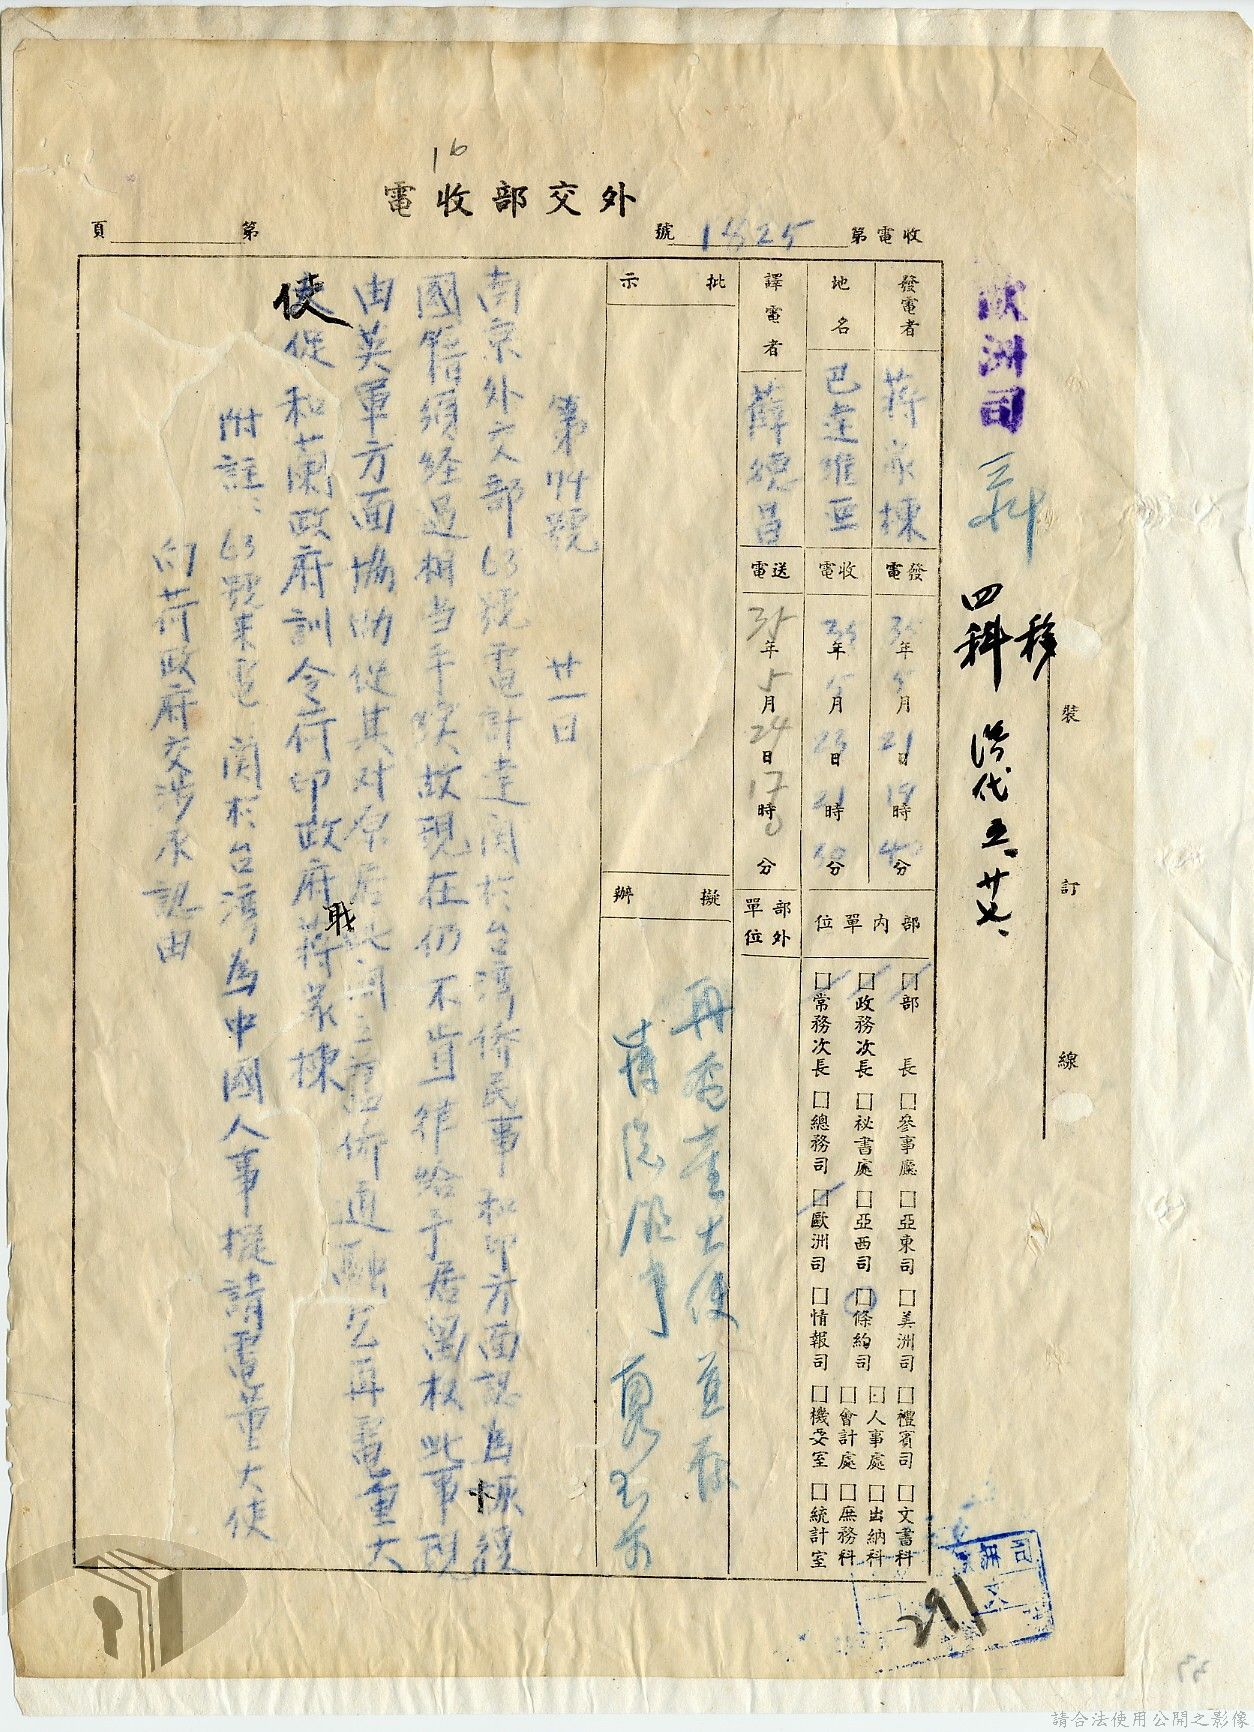 16
外交部收電
收電第1825號
第　　頁
發電者
蔣家棟
發電
35年5月21日19時40分
地名
巴達維亞
收電
35年5月23日21時50分
譯電者
薛德昌
送電
35年5月24日17時0分
部內單位
部外單位
□部長 □參事廳 □亞東司 □美洲司 □禮賓司 □文書科
□人事處 □出納科
□政務次長 □祕書處 □亞西司 □條約司
□會計處 □庶務科
□常務次長 □總務司 □歐洲司 □情報司 □機要室 □統計室
批示
擬辦
再電董大使
第74號 廿一日
南京外交部63號電計達關於台灣僑民事和印方面認為恢復
國籍須經過相当手續故現在仍不肯准給予居留权此事現
由英軍方面協助從其对原居此間之舊僑通融乞再電董大
使促和蘭政府訓令荷印政府 蔣家棟
附註：63號來電關於台灣為中國人事擬請電董大使
向荷政府交涉承認由
歐洲司
移
四科
代 五、廿七、
裝
訂
線
291
請合法使用公開之影像